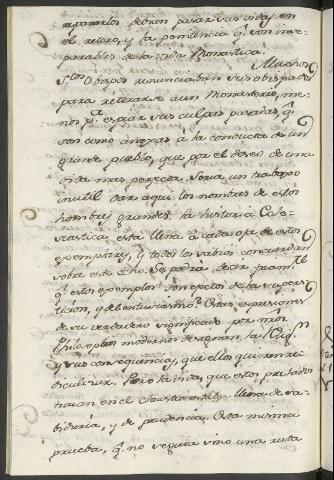 repararlos debian pasar sus vidas en
el retiro, y la penitencia q.e son inse-
parables de la vida Monastica.
Muchos
S.tos Obispos renunciaban sus obispados
para retirarse a un Monasterio, me-
nos p.a espiar sus culpas pasadas, q.e
son como anexas á la conducta de un
grande pueblo, que por el deseo de una
vida mas perfecta. Seria un trabajo
inutil dar aqui los nombres de estos
hombres grandes: la historia Ecle-
siastica está llena á cada oja de estos
exemplares, y todos los sabios concuerdan
sobre este hecho. Se podrá decir
q.e estos exemplos son efectos de la supers-
ticion, y del entusiasmo? Estas expresiones
de su verdadero significado por
Philosophos modernos designan la Relig.n
y sus consequencias, que ellos quieren ri-
diculizar. Pero la vida, que estos prelados
tenian en el claustro estaba llena de sa-
biduria, y de prudencia. Esta misma
prueba, q.e no seguia sino una ruta